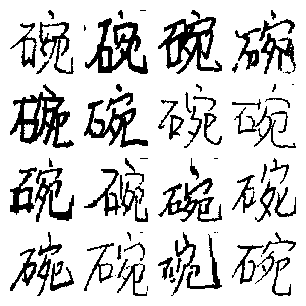 碗碗碗碗
碗碗碗碗
碗碗碗碗
碗碗碗碗